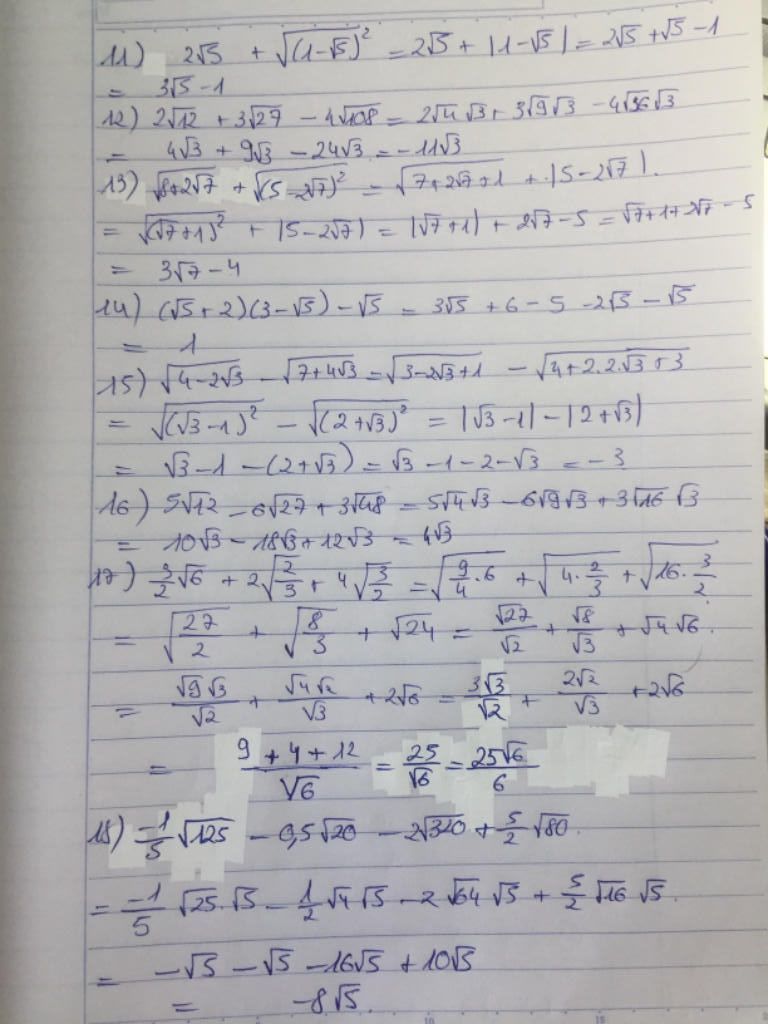 11) 2√5 + √(1-√5)² = 2√5 + |1-√5| = 2√5 + √5 - 1
= 3√5 - 1
12) 2√12 + 3√27 - 4√108 = 2√4 √3 + 3√9 √3 - 4√36 √3
= 4√3 + 9√3 - 24√3 = -11√3
13) √8+2√7 + √(5-2√7)² = √7+2√7+1 + |5-2√7|.
= √(√7+1)² + |5-2√7| = |√7+1| + 2√7-5 = √7+1+2√7-5
= 3√7-4
14) (√5+2)(3-√5)-√5 = 3√5 + 6 - 5 - 2√5 - √5
= 1
15) √4-2√3 - √7+4√3 = √3-2√3+1 - √4+2.2.√3+3
= √(√3-1)² - √(2+√3)² = |√3-1| - |2+√3|
= √3-1-(2+√3) = √3-1-2-√3 = -3
16) 5√12 - 6√27 + 3√48 = 5√4 √3 - 6√9 √3 + 3√16 √3
= 10√3 - 18√3 + 12√3 = 4√3
17) 3/2 √6 + 2√2/3 + 4√3/2 = √9/4 . 6 + √4 . 2/3 + √16 . 3/2
= √27/2 + √8/3 + √24 = √27/√2 + √8/√3 + √4 √6.
= √9 √3/√2 + √4 √2/√3 + 2√6 = 3√3/√2 + 2√2/√3 + 2√6
= 9+4+12/√6 = 25/√6 = 25√6/6
18) -1/5 √125 - 0,5√20 - 2√320 + 5/2 √80.
= -1/5 √25.√5 - 1/2 √4 √5 - 2√64 √5 + 5/2 √16 √5.
= -√5 - √5 - 16√5 + 10√5
= -8√5.